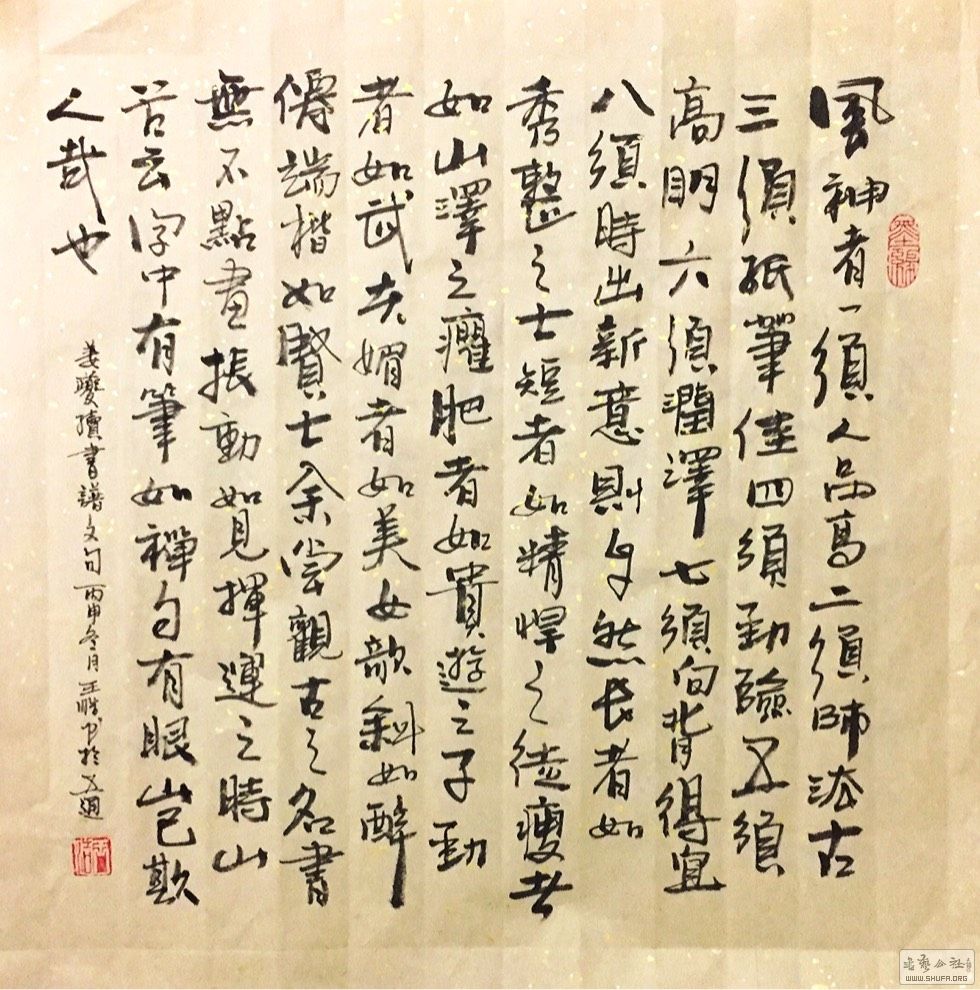 風神者一須人品高二須師法古
三須紙筆佳四須勁險五須
高明六須潤澤七須向背得宜
八須時出新意則自然長者如
秀整之士短者如精悍之徒瘦者
如山澤之癯肥者如貴遊之子勁
者如武夫媚者如美女欹斜如醉
僊端楷如賢士余嘗觀古之名書
無不點畫振動如見揮運之時山
谷云字中有筆如禪句有眼豈欺
人哉也
姜夔續書譜文句丙申冬月王書於
WWW.SHUFA.ORG